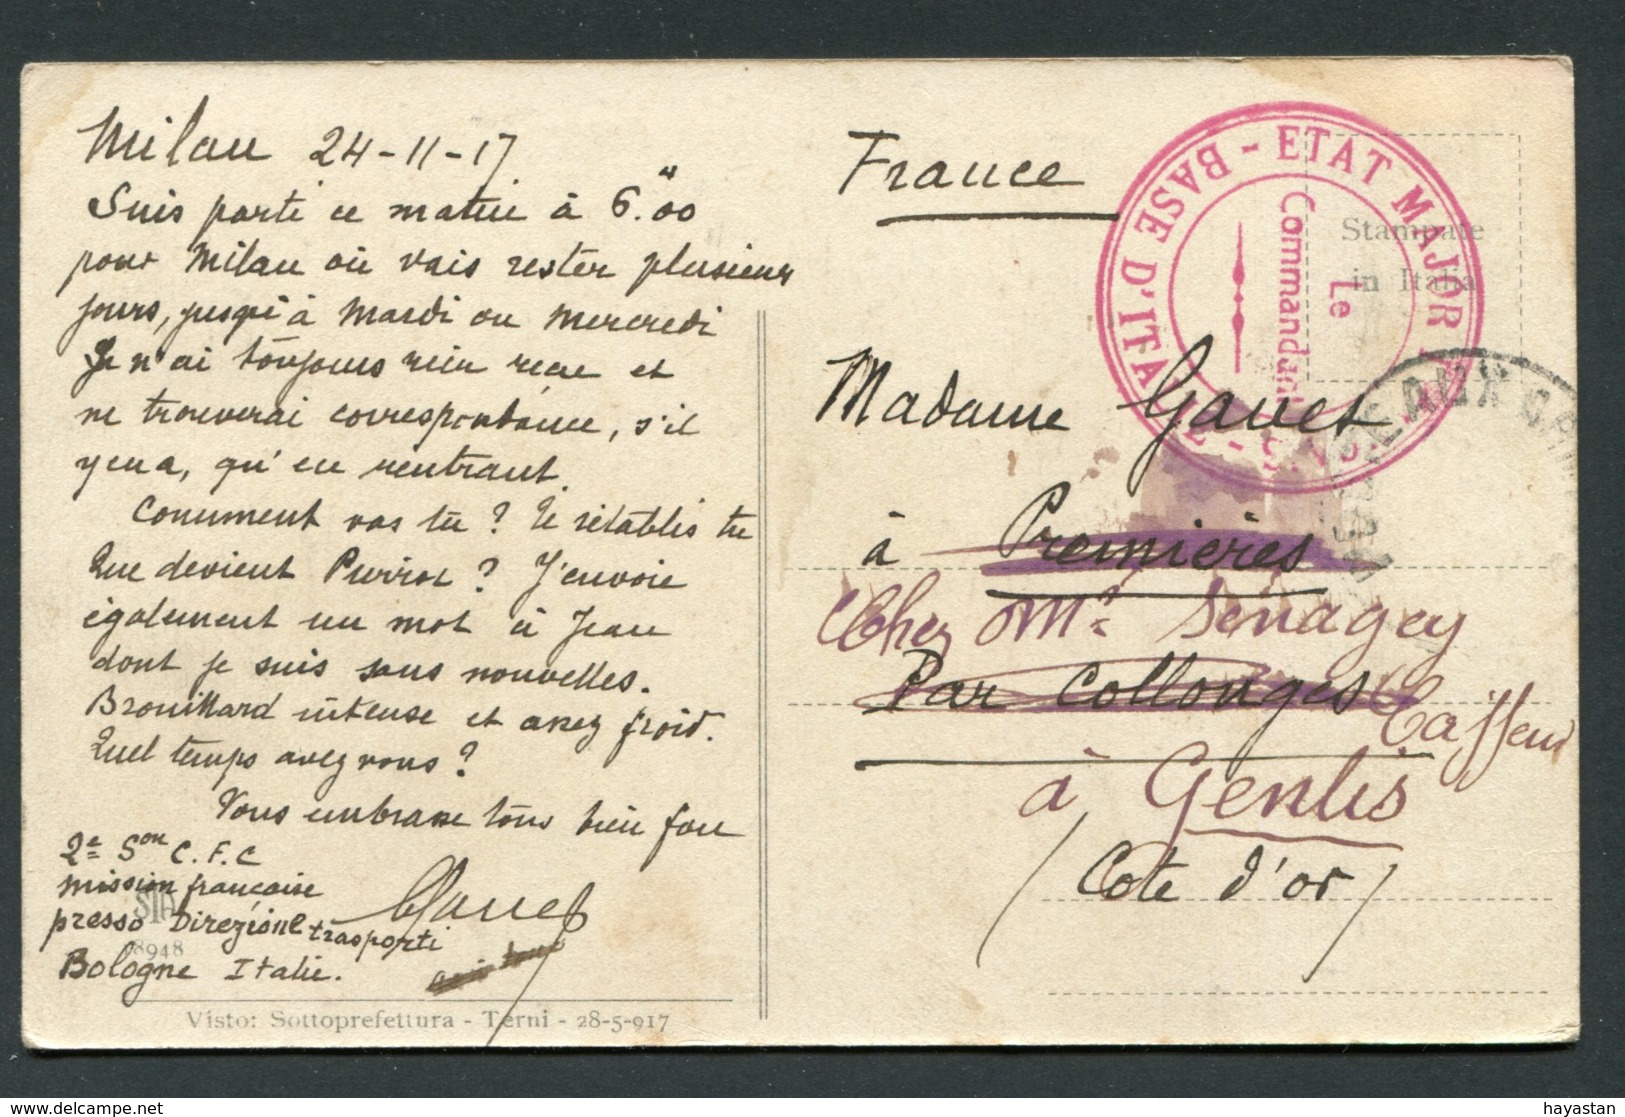 Milan 24-11-17
Suis parti ce matin à 6.00
pour Milan où vais rester plusieurs
jours, jusqu'à Mardi ou Mercredi
Je n'ai toujours rien reçu et
ne trouverai correspondance, s'il
y en a, qu'en rentrant.
Comment vas tu ? Te rétablis tu
Que devient Pierrot ? J'envoie
également un mot à Jean
dont je suis sans nouvelles.
Brouillard intense et assez froid.
Quel temps avez vous ?
Vous embrasse tous bien fort
2e Son C.F.C
mission française
presso Direzione trasporti
Bologne Italie.
STA
8948
Visto: Sottoprefettura - Terni - 28-5-917
France
BASE D'ITALIE - ETAT MAJOR
Le
Commandant
Stampate
in Italia
Madame Gauet
à Premières
Chez Mr Senagey
Par Collonges
à Genlis
(Cote d'or)
hayastan